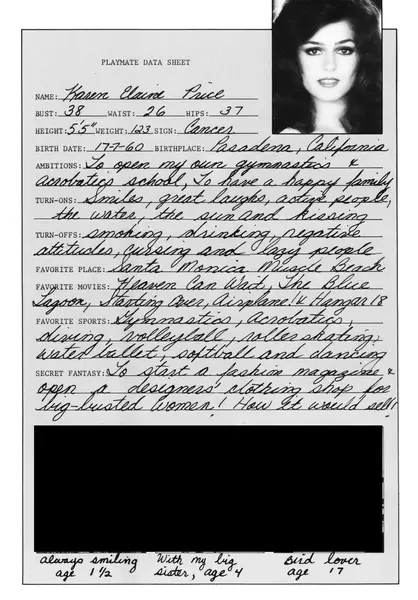 PLAYMATE DATA SHEET
NAME: Karen Elaine Price
BUST: 38 WAIST: 26 HIPS: 37
HEIGHT: 5'5" WEIGHT: 123 SIGN: Cancer
BIRTH DATE: 17-7-60 BIRTHPLACE: Pasadena, California
AMBITIONS: To open my own gymnastics &
acrobatics school, To have a happy family
TURN-ONS: Smiles, great laughs, active people,
the water, the sun and kissing
TURN-OFFS: smoking, drinking, negative
attitudes, cursing and lazy people
FAVORITE PLACE: Santa Monica Muscle Beach
FAVORITE MOVIES: Heaven Can Wait, The Blue
Lagoon, Starting Over, Airplane! & Hangar 18
FAVORITE SPORTS: Gymnastics, acrobatics,
diving, volleyball, roller skating,
water ballet, softball and dancing
SECRET FANTASY: To start a fashion magazine &
open a designers' clothing shop for
big-busted women! How it would sell!
always smiling With my big Bird lover
age 1 1/2 sister, age 4 age 17